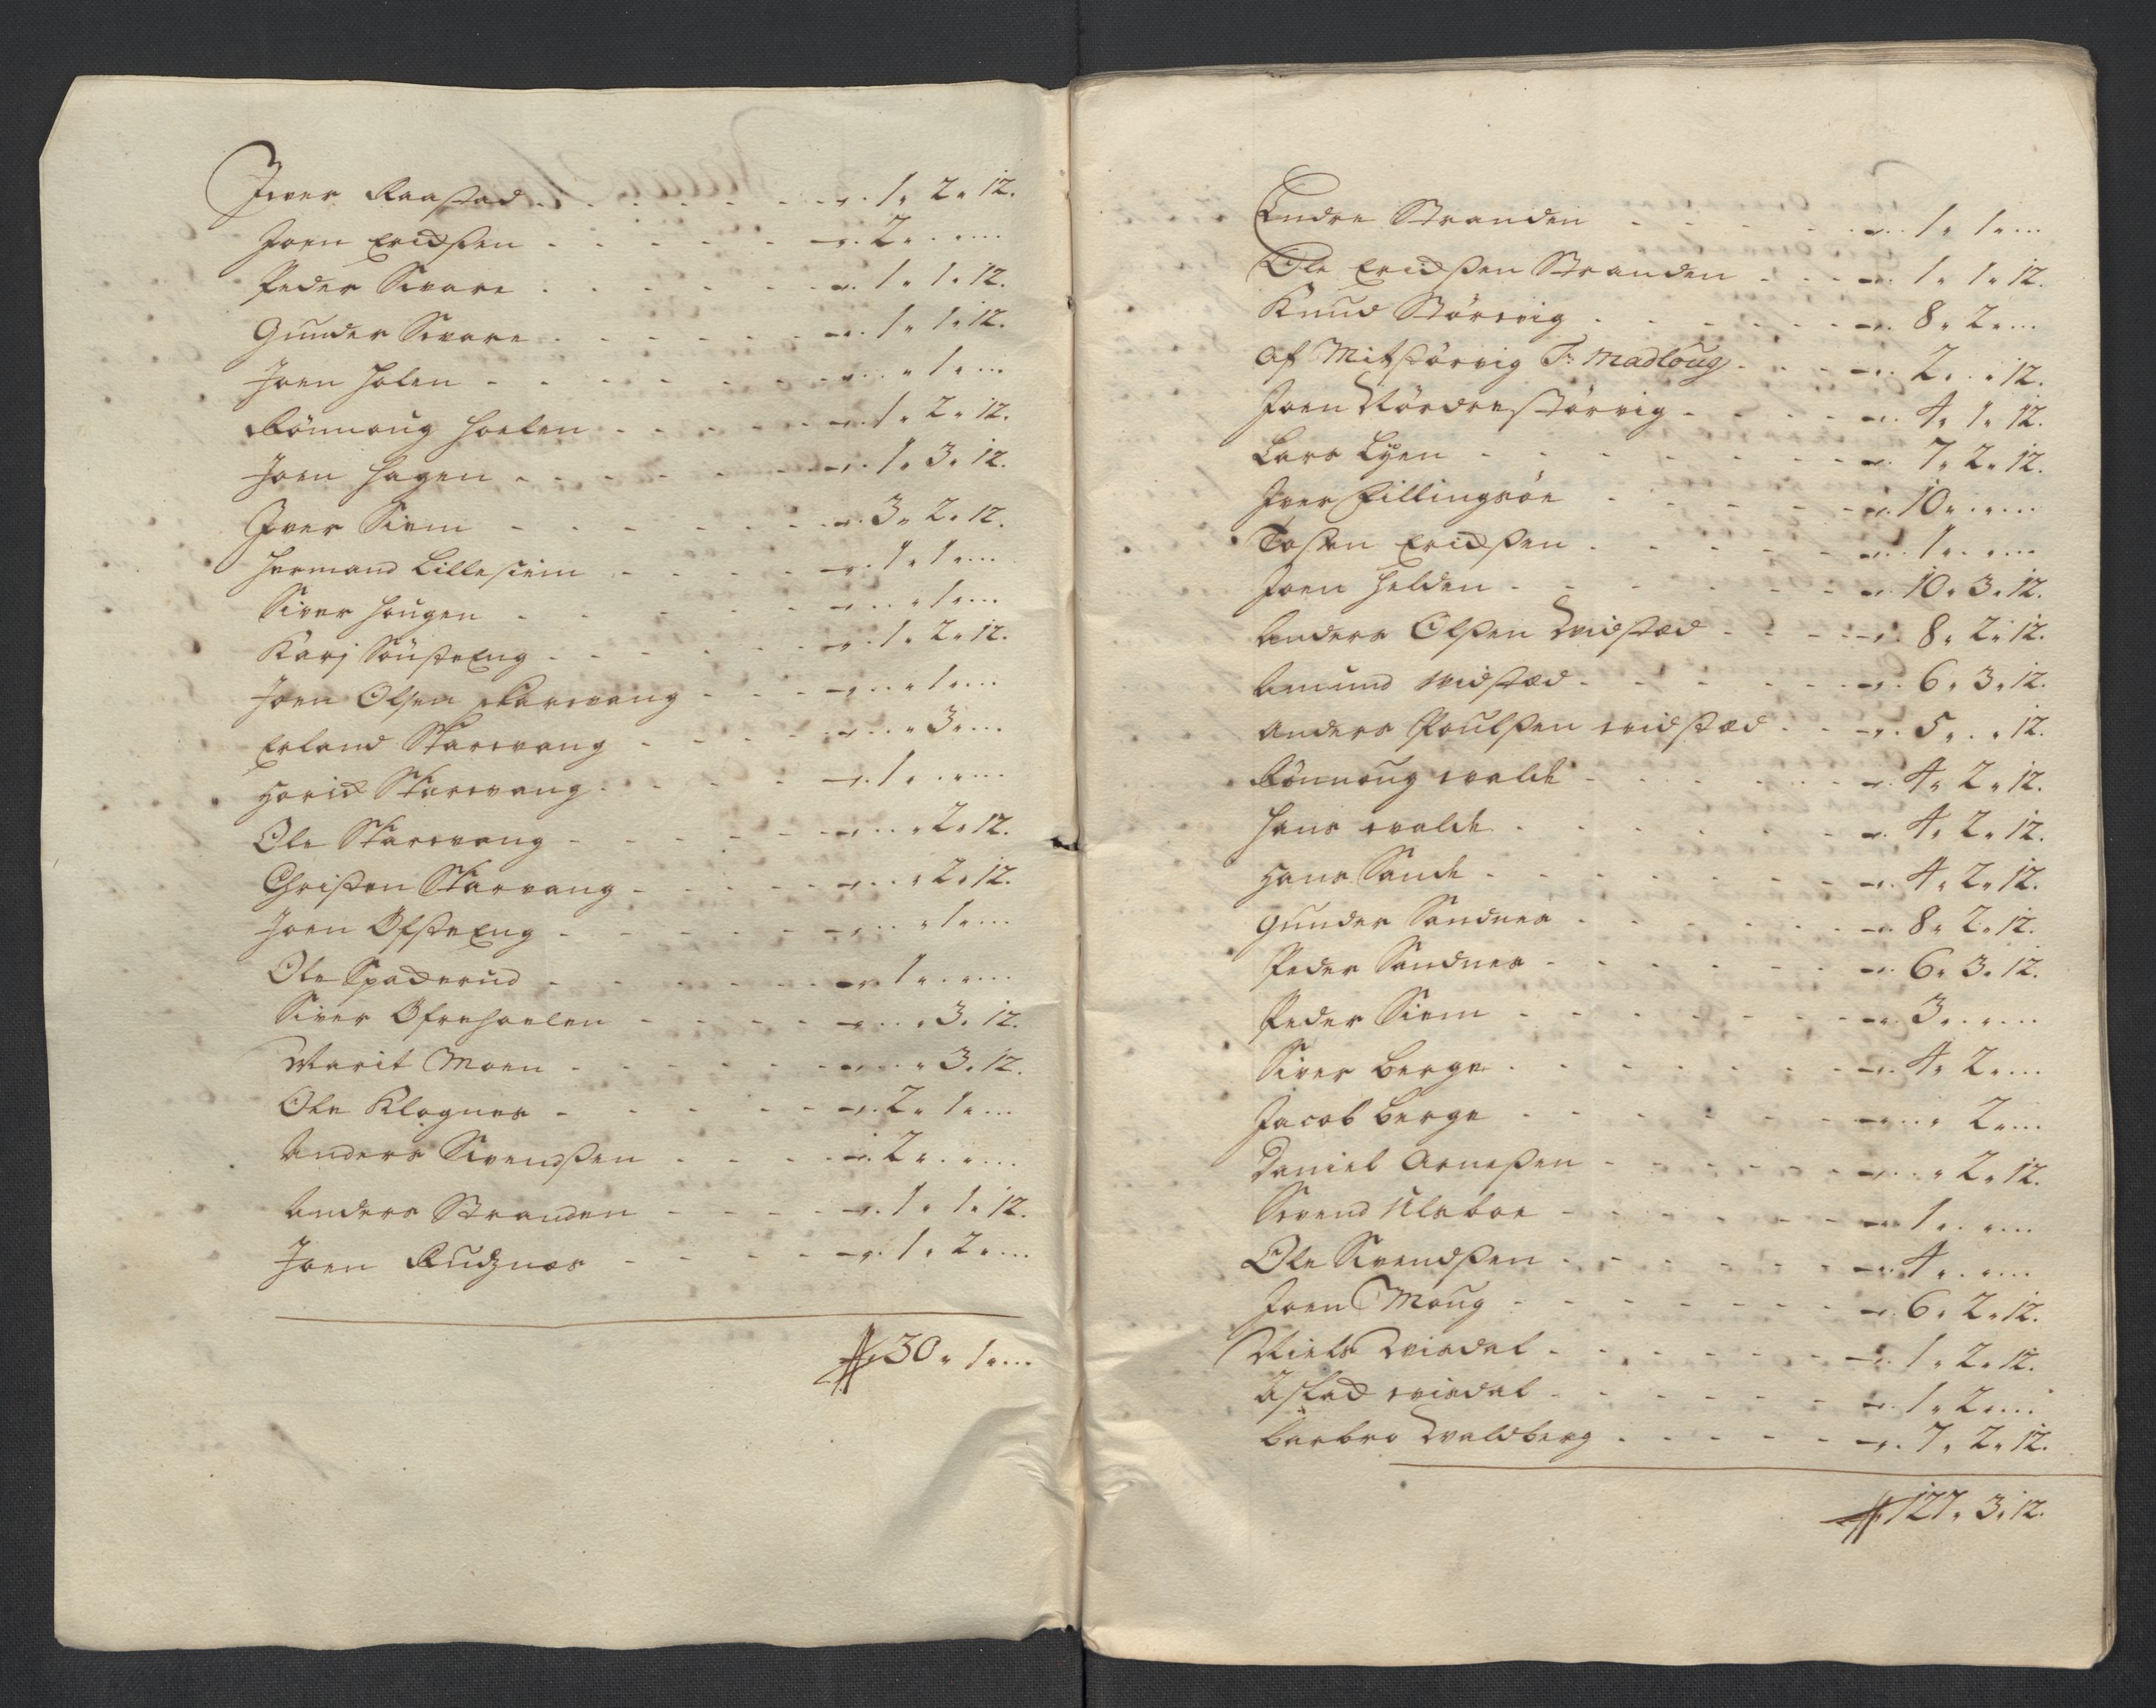 Iver Raastad - - - - - 1 " 2 " 12.
Joen Erichsen - - - - - 2 " . " ...
Peder Svare - - - - - 1 " 1 " 12.
Gunder Svare - - - - - 1 " 1 " 12.
Joen Holen - - - - - . " 1 " ...
Rönnoug Hoelen - - - - - 1 " 2 " 12.
Joen Hagen - - - - - 1 " 3 " 12.
Iver Siem - - - - - 3 " 2 " 12.
Hermand Lillesiem - - - - 1 " 1 " ...
Siver Hougen - - - - - . " 1 " ...
Karj SöusteEng - - - - - 1 " 2 " 12.
Joen Olsen Starvang - - - . " 1 " ...
Erland Starvang - - - - . " 3 " ...
Starvang - - - - 1 " . " ...
Ole Starvang - - - - - . " 2 " 12.
Christen Starvang - - - - . " 2 " 12.
Joen OfsteEng - - - - - . " 1 " ...
Ole Spaderud - - - - - 1 " . " ...
Siver Ofrehoelen - - - - . " 3 " 12.
Marit Moen - - - - - . " 3 " 12.
Ole Klognes - - - - - 2 " 1 " ...
Anders Svendsen - - - - 2 " . " ...
Anders Stranden - - - - 1 " 1 " 12.
Joen Rudznæs - - - - - 1 " 2 " ...
30 " 1 " ...
Endre Stranden - - - - - 1 " 1 " ...
Ole Erichsen Stranden - - - 1 " 1 " 12.
Knud Störvig - - - - - 8 " 2 " ...
Af Mitstörvig T: Madloug - - - 2 " . " 12.
Joen Nördrestörvig - - - - 4 " 1 " 12.
Lars Lyen - - - - - 7 " 2 " 12.
Iver Fillingsöe - - - - - 10 " . " ...
Tosten Erichsen - - - - - 1 " . " ...
Joen Helden - - - - - 10 " 3 " 12.
Anders Olsen Vidsted - - - 8 " 2 " 12.
Amund Vidsted - - - - - 6 " 3 " 12.
Anders Poulsen Vidsted - - 5 " . " 12.
Rönnoug Valde - - - - - 4 " 2 " 12.
Hans Valde - - - - - 4 " 2 " 12.
Hans Sande - - - - - 4 " 2 " 12.
Gunder Sandnes - - - - - 8 " 2 " 12.
Peder Sandnes - - - - - 6 " 3 " 12.
Peder Siem - - - - - 3 " . " ...
Siver Berge - - - - - 4 " 2 " ...
Jacob Berge - - - - - . " 2 " ...
Daniel Arnesen - - - - - . " 2 " 12.
Svend Ulsboe - - - - - 1 " . " ...
Ole Svendsen - - - - - 4 " . " ...
Joen Moug - - - - - 6 " 2 " 12.
Niels Viedal - - - - - 1 " 2 " 12.
Aslad Viedal - - - - - 1 " 2 " ...
Barbro Valdberg - - - - - 7 " 2 " 12.
127 " 3 " 12.